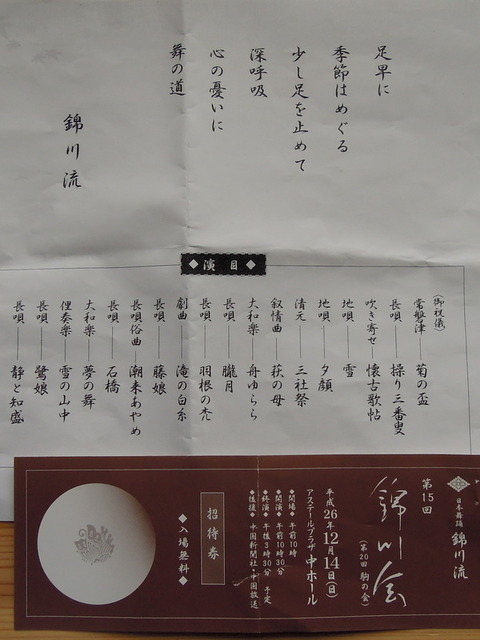 足早に
季節はめぐる
少し足を止めて
深呼吸
心の憂いに
舞の道
錦川流
◆演目◆
(御祝儀)
常磐津 菊の盃
長唄 操り三番叟
吹き寄せ 懐古歌帖
地唄 雪
地唄 夕顔
清元 三社祭
叙情曲 萩の母
大和楽 舟ゆらら
長唄 朧月
長唄 羽根の禿
劇曲 滝の白糸
長唄 藤娘
長唄俗曲 潮来あやめ
長唄 石橋
大和楽 夢の舞
俚奏楽 雪の山中
長唄 鷺娘
長唄 静と知盛
日本舞踊 錦川流
第15回
錦川会
(第20回 駒の会)
平成26年12月14日(日)
アステールプラザ 中ホール
◆開場◆午前10時
◆開演◆午前10時30分
◆終演◆午後3時30分 予定
◆後援◆中国新聞社・中国放送
招待券
◆入場無料◆